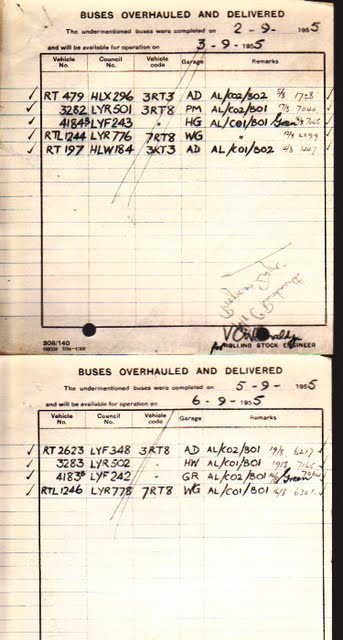 BUSES OVERHAULED AND DELIVERED
The undermentioned buses were completed on 2 - 9 - 1955
and will be available for operation on 3 - 9 - 1955
Vehicle No. Council No. Vehicle code Garage Remarks
✓ RT 479 HLX296 3RT3 AD AL/K02/B02 1728 ✓
✓ 3282 LYR501 3RT8 PM AL/K02/B01 ✓
✓ 4184 LYF243 " HG AL/C01/B01 Green ✓
✓ RTL1244 LYR776 7RT8 WG " ✓
✓ RT 197 HLW184 3KT3 AD AL/K01/B02 ✓
308/140
ROLLING STOCK ENGINEER
BUSES OVERHAULED AND DELIVERED
The undermentioned buses were completed on 5 - 9 - 1955
and will be available for operation on 6 - 9 - 1955
Vehicle No. Council No. Vehicle code Garage Remarks
✓ RT2623 LYF348 3RT8 AD AL/K02/B01 19/8 6217 ✓
✓ 3283 LYR502 " HW AL/K01/B01 ✓
✓ 4183 LYF242 " GR AL/K02/B01 Green ✓
✓ RTL1246 LYR778 7RT8 WG AL/C01/B01 ✓